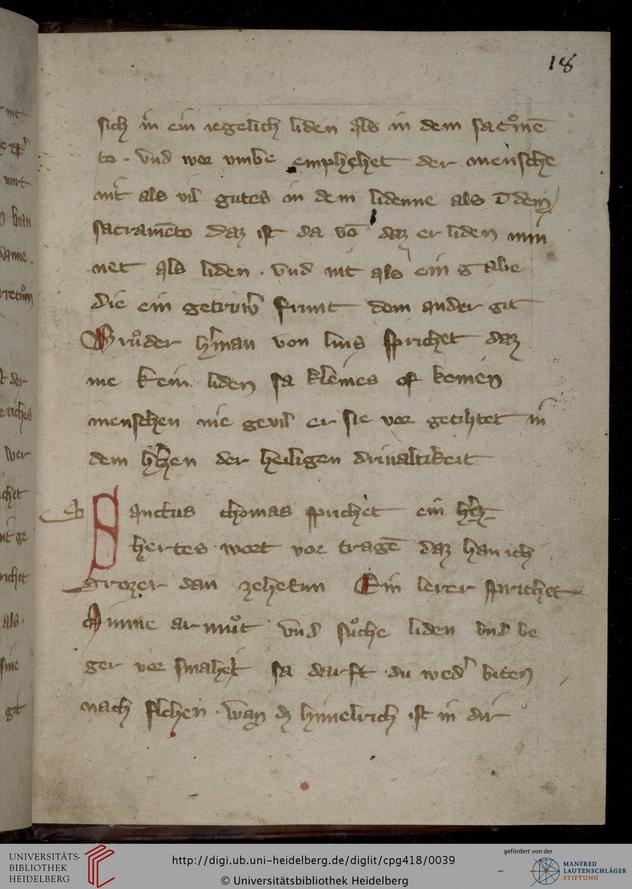 18
sich in ein iegelich liden als in dem sacͣmē
to · vnd wor vmbe emphehet der mensche
nit als vil gutes in dem lidenne als ī dem
sacramēto daz ist da vō daz er liden nim
met als liden · vnd nit als ein gabe
die ein getruw frunt dem ander git
Brůder hman von lins sprichet daz
nie kein liden sa kleines of keinen
menschen nie gevil er sie vor getihtet in
dem hꝛzen der heiligen driualtikeit
Sanctus thomas sprichet ein hꝛtz
hertes wort vor tragē daz han ich
grozer dan zehetun Ein lerer sprichet
Minne armůt vnd sůche liden vnd be
ger vor smahet sa darft du wed biten
nach flehen · wan dz himelrich ist in dir
UNIVERSITÄTS-
BIBLIOTHEK
HEIDELBERG
http://digi.ub.uni-heidelberg.de/diglit/cpg418/0039
© Universitätsbibliothek Heidelberg
gefördert von der
MANFRED
LAUTENSCHLÄGER
STIFTUNG